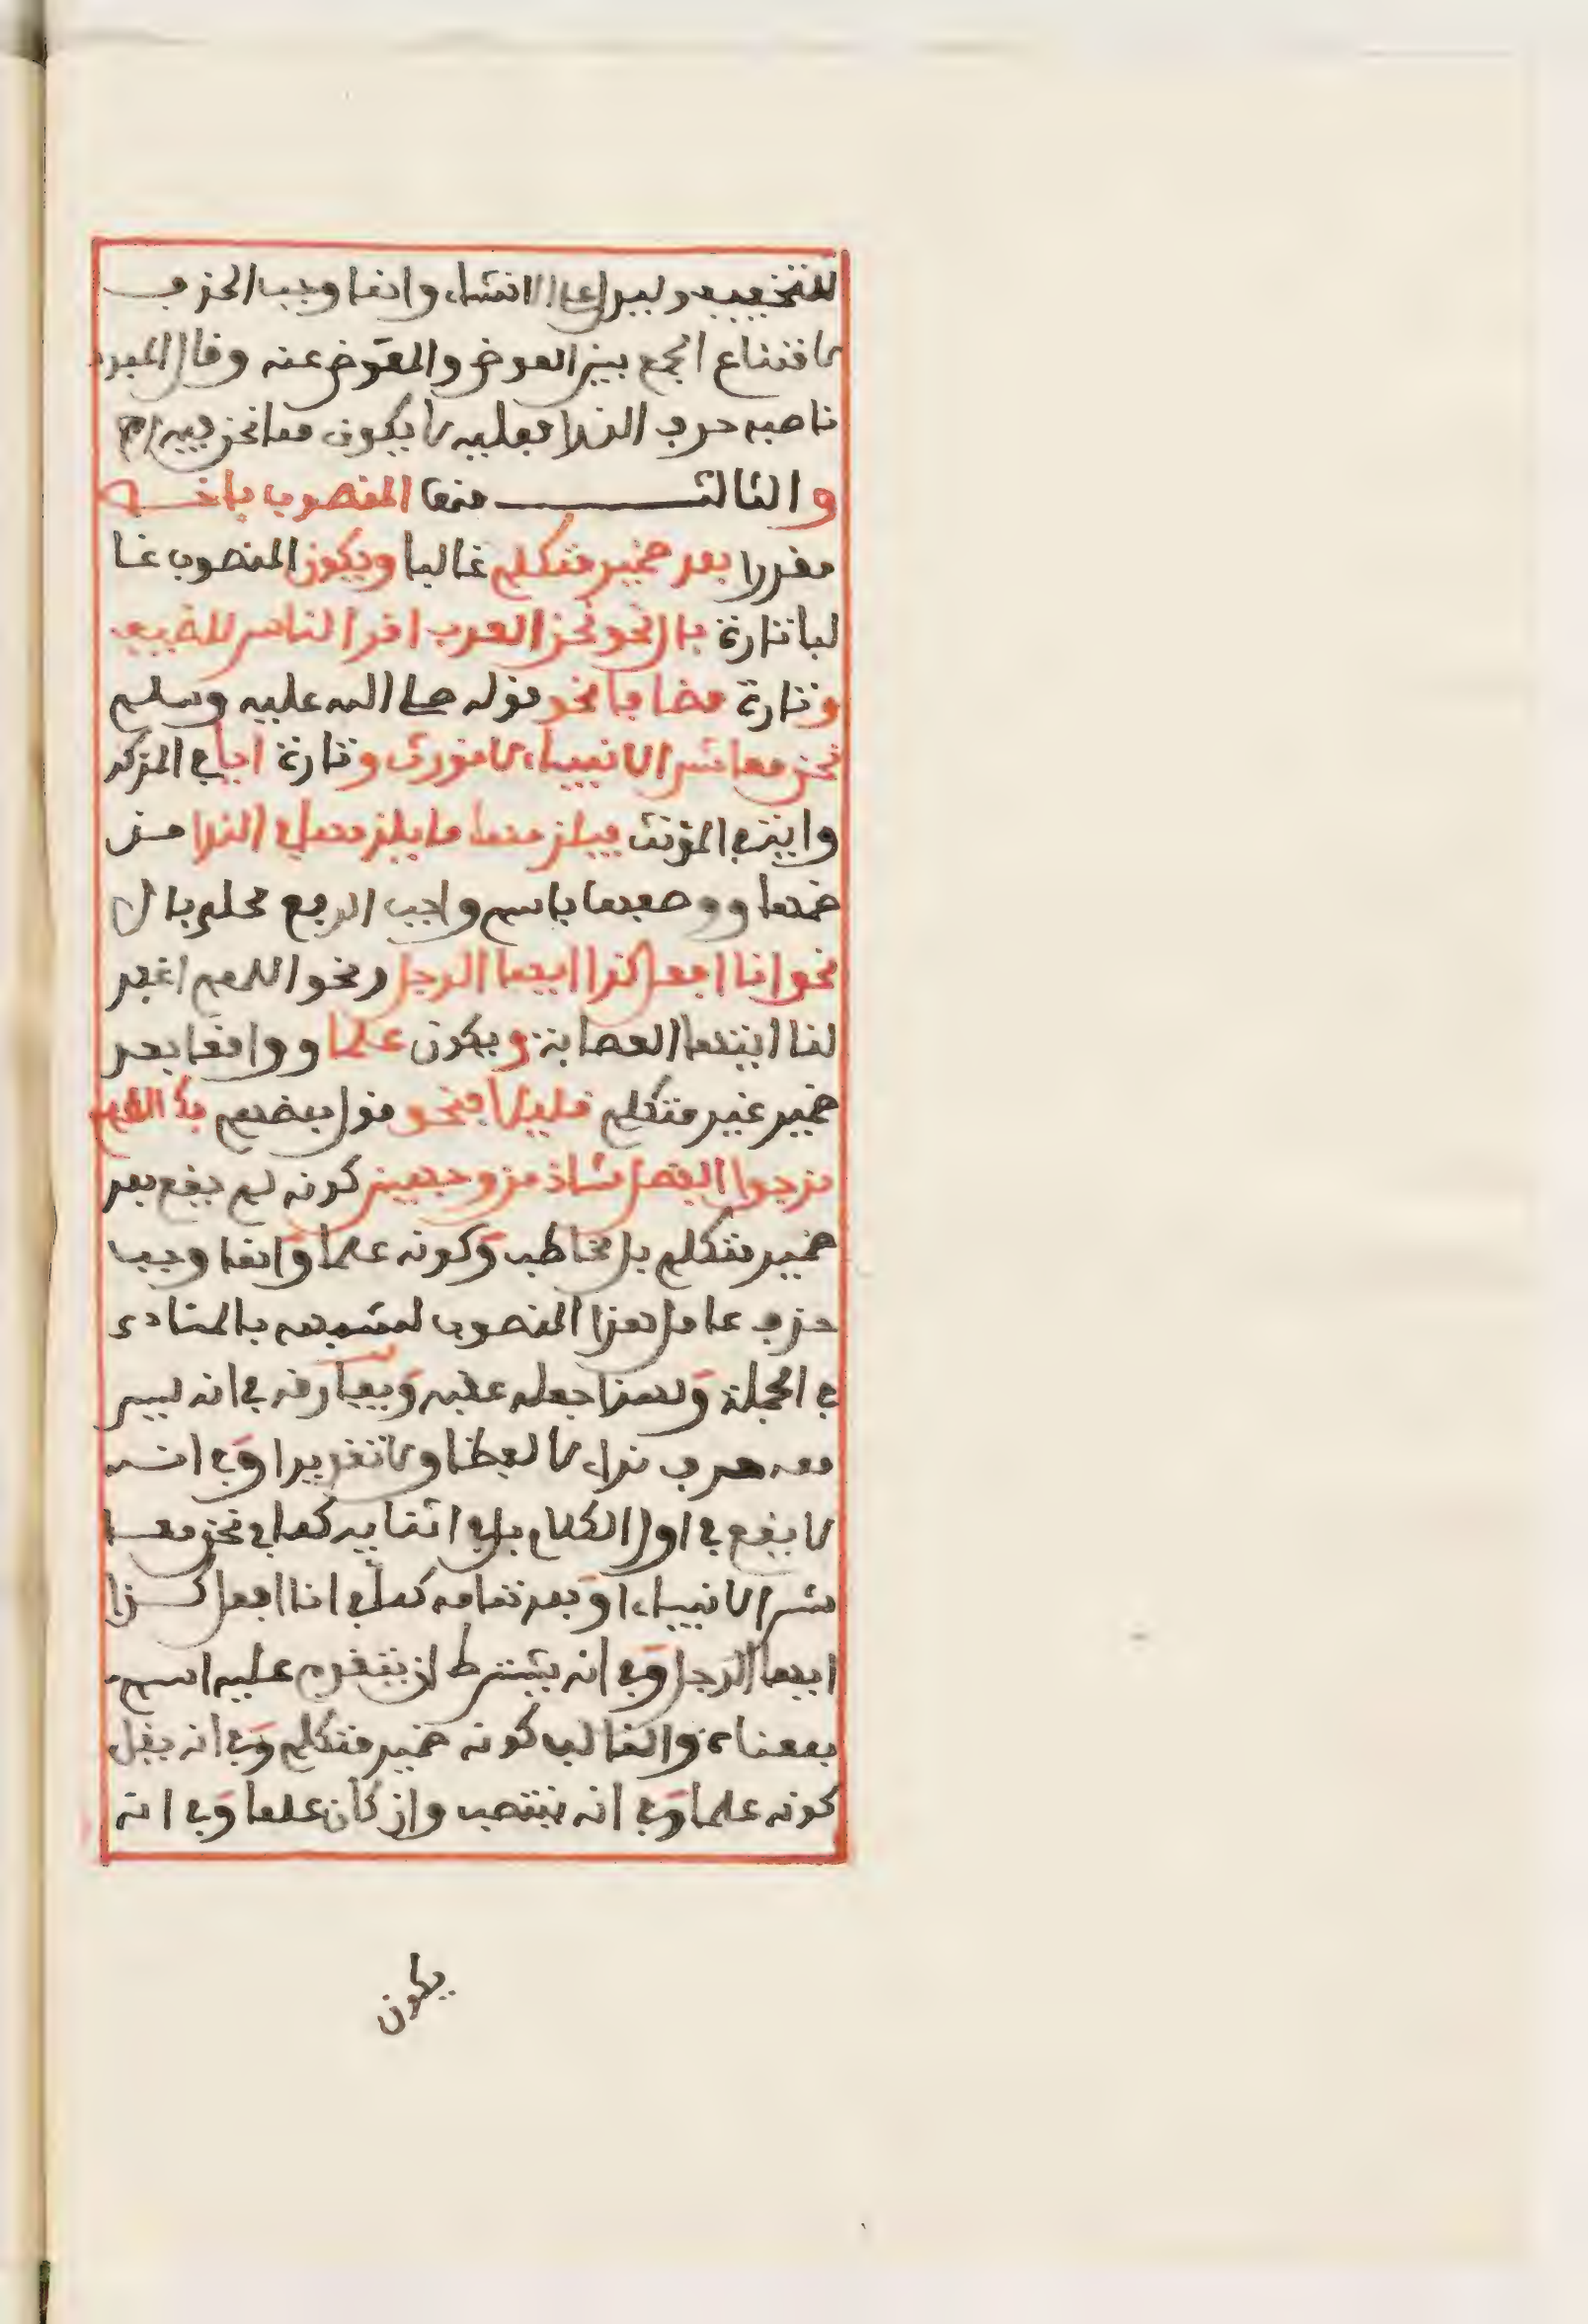 للتخفيف وليدل على الانشاء وانما وجب الحذف
لامتناع الجمع بين العوض والمعوض عنه وقال المبرد
ناصبه حرف النداء فعليه لا يكون مما نحن فيه اه
والثالث منها المنصوب باخص
مقدرا بعد ضمير متكلم غالبا ويكون المنصوب غا
لبا تارة بال نحو نحن العرب اقرا الناس للضيف
وتارة مضافا نحو قوله صلى الله عليه وسلم
نحن معاشر الانبياء لا نورث وتارة ايا في المذكر
واية في المؤنث فيلزمها ما يلزمها في النداء من
ضمها ووصفها باسم واجب الرفع محلى بال
نحو انا افعل كذا ايها الرجل ونحو اللهم اغفر
لنا ايتها العصابة ويكون علما وواقعا بعد
ضمير غير متكلم قليلا فنحو قول بعضهم بك الله
نرجوا الفضل شاذ من وجهين كونه لم يقع بعد
ضمير متكلم بل مخاطب وكونه علما وانما وجب
حذف عامل هذا المنصوب لشبهه بالمنادى
في الجملة ولهذا جعله عقبه ويفارقه في انه ليس
معه حرف نداء لا لفظا ولا تقديرا وفي انه
لا يقع في اول الكلام بل في اثنايه كما في نحن معا
شر الانبياء او بعد تمامه كما في انا افعل كذا
ايها الرجل وفي انه يشترط ان يتقدم عليه اسم
بمعناه والغالب كونه ضمير متكلم وفي انه يقل
كونه علما وفي انه ينتصب وان كان علما وفي انه
يكون